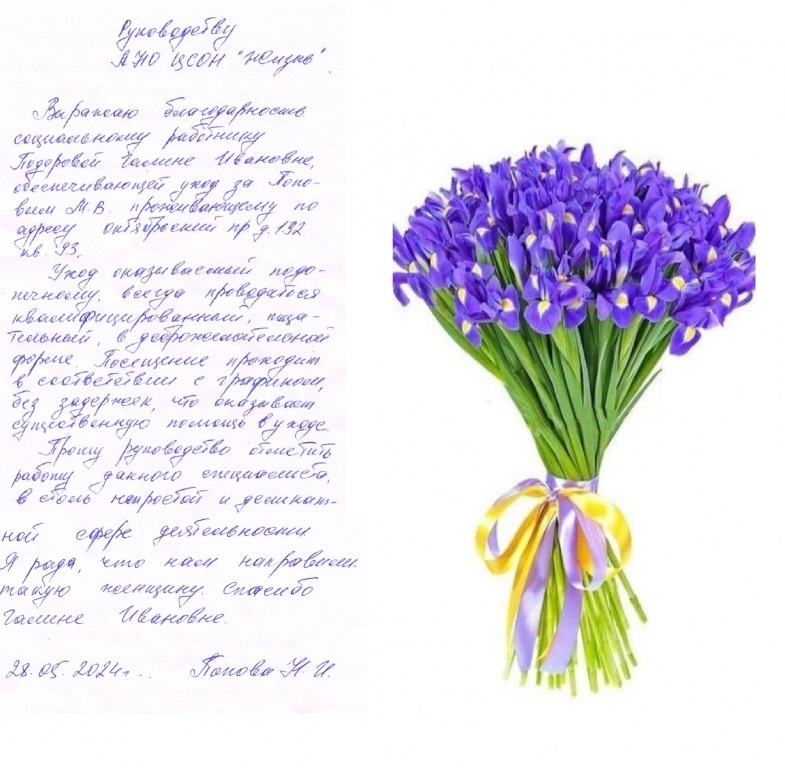 Руководству
АНО ЦСОН "Жизнь".
Выражаю благодарность
социальному работнику
Подоровой Галине Ивановне,
обеспечивающей уход за Попо-
вым М.В. проживающему по
адресу октябрьский пр. д. 192
кв. 93.
Уход оказываемый подо-
печному, всегда проводится
квалифицированный, тща-
тельный, в доброжелательной
форме. Посещение проходит
в соответствии с графиком,
без задержек, что оказывает
существенную помощь в уходе.
Прошу руководство отметить
работу данного специалиста,
в столь непростой и деликат-
ной сфере деятельности.
Я рада, что нам направили
такую женщину. Спасибо
Галине Ивановне.
28.05.2024г.. Попова Н.И.